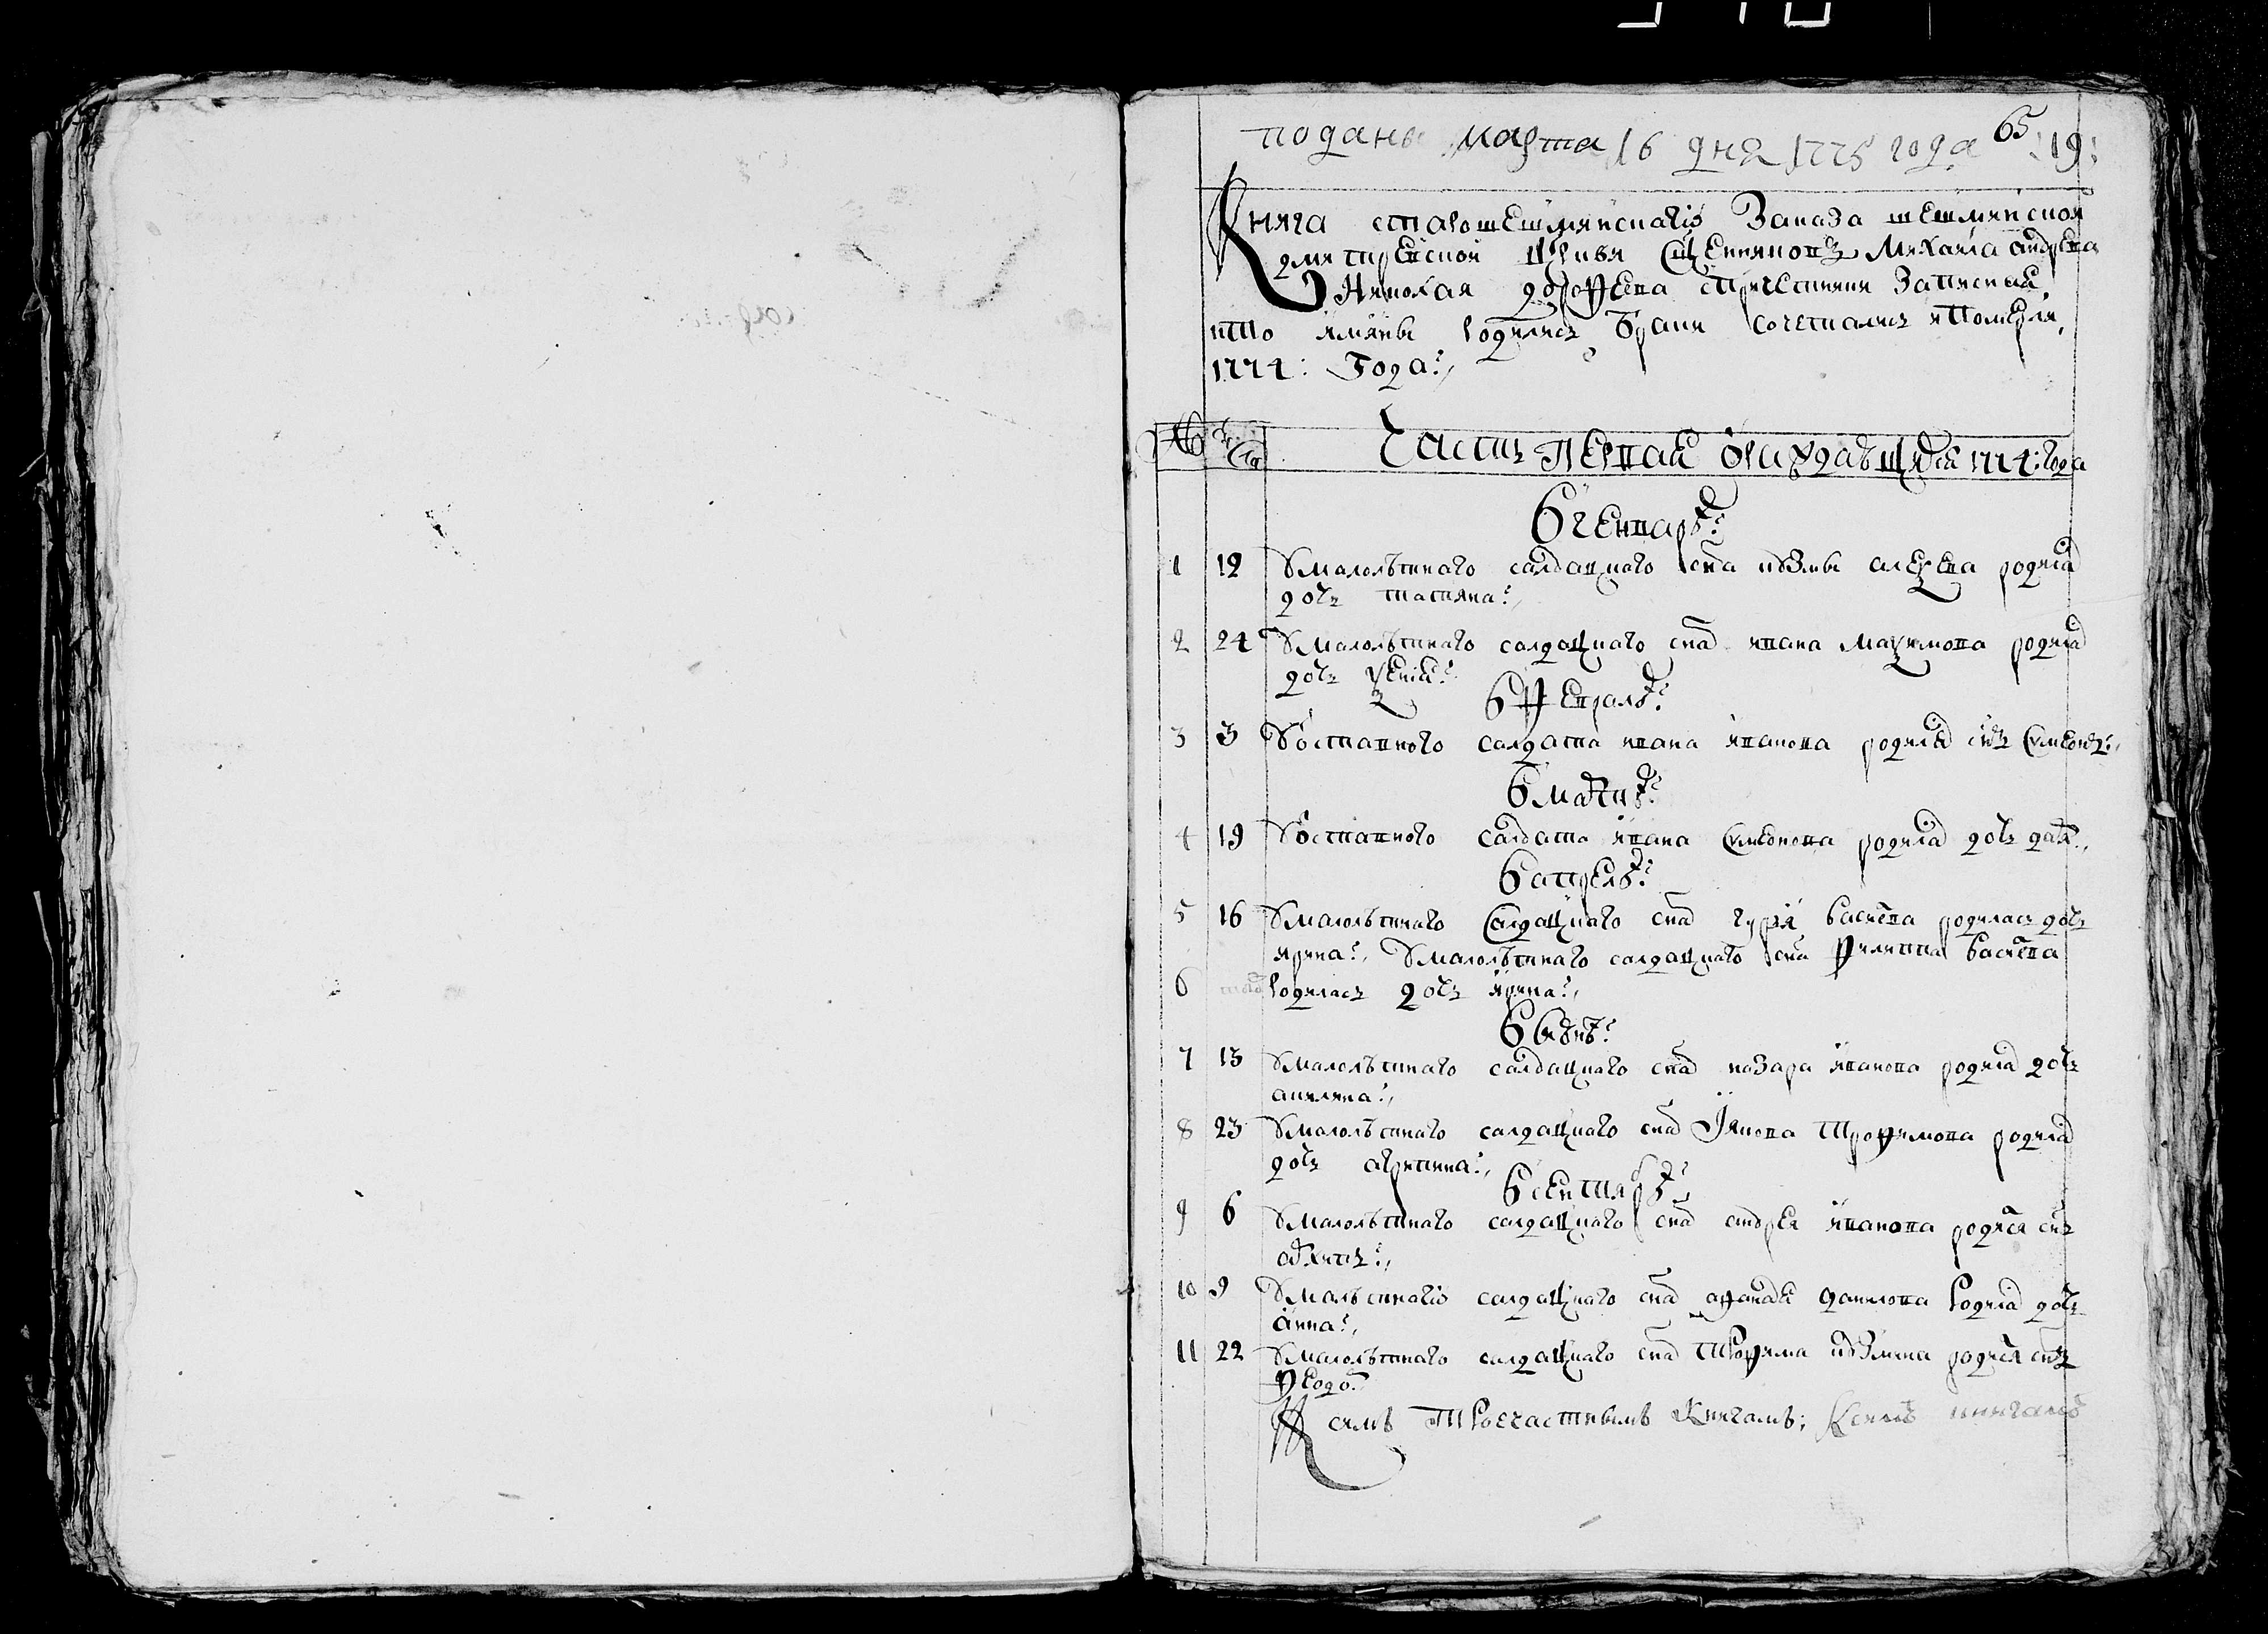 поданы марта 16 дня 1775 года 65 :19:
Книга старошешминскаго Заказа шешминской
дмитревской Церкви Священниковъ Михаила андреева
Николая дорофеева Причетники Записныѣ,
кто имяны родились браки сочетались и Померли,
1774: Года:,
№ Чи сла Часть Первая ораждающихся 1774: года
В генваре:
1 12 У малолѣтнаго салдацкаго сна кузмы алеѯеева родилас
дочь татияна:,
2 24 У малолѣтнаго салдацкаго сна ивана Маѯимова родилас
дочь ѯения:
В Феврале:
3 3 У ѿставного салдата ивана иванова родился снъ Сумеонъ:,
В марте:
4 19 У ѿставного салдата ивана Сумеонова родилас дочь даря:,
В апреле:
5 16 У малолѣтнаго Салдацкаго сна гурия василева родилась дочь
ирина:, У малолѣтнаго салдацкаго сна Филиппа василева
6 того родилась дочь ирина:,
В июне:
7 13 У малолѣтнаго салдацкаго сна назара иванова родилас дочь
акилина:,
8 23 У малолѣтнаго салдацкаго сна Иякова Трофимова родилас
дочь агрипина:,
В сентябре:
9 6 У малолѣтнаго салдацкаго сна андрея иванова родися снъ
10 9 У малѣтнаго салдацкаго сна афанася данилова родилас дочь
анна:,
11 22 У малолѣтнаго салдацкаго сна Трофима кузмина родися снъ
Феодо:
К симъ Троечастнымъ Книгамъ; К симъ книгамъ